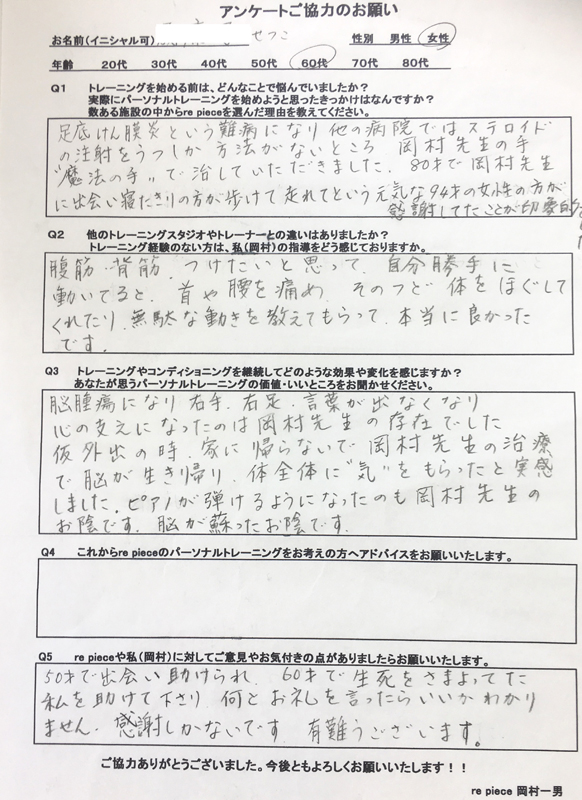 アンケートご協力のお願い
お名前(イニシャル可) せつこ 性別 男性 女性
年齢 20代 30代 40代 50代 60代 70代 80代
Q1 トレーニングを始める前は、どんなことで悩んでいましたか?
実際にパーソナルトレーニングを始めようと思ったきっかけはなんですか?
数ある施設の中からre pieceを選んだ理由を教えてください。
足底けん膜炎という難病になり他の病院ではステロイド
の注射をうつしか方法がないところ 岡村先生の手
"魔法の手"で治していただきました。80才で岡村先生
に出会い寝たきりの方が歩けて走れてという元気な94才の女性の方が
感謝してたことが印象的
Q2 他のトレーニングスタジオやトレーナーとの違いはありましたか?
トレーニング経験のない方は、私(岡村)の指導をどう感じておりますか。
腹筋・背筋、つけたいと思って、自分勝手に
動いてると、首や腰を痛め、そのつど体をほぐして
くれたり、無駄な動きを教えてもらって、本当に良かった
です。
Q3 トレーニングやコンディショニングを継続してどのような効果や変化を感じますか?
あなたが思うパーソナルトレーニングの価値・いいところをお聞かせください。
脳腫瘍になり右手、右足、言葉が出なくなり
心の支えになったのは岡村先生の存在でした
仮外出の時、家に帰らないで岡村先生の治療
で脳が生き帰り、体全体に"気"をもらったと実感
しました。ピアノが弾けるようになったのも岡村先生の
お陰です。脳が蘇ったお陰です。
Q4 これからre pieceのパーソナルトレーニングをお考えの方へアドバイスをお願いいたします。
Q5 re pieceや私(岡村)に対してご意見やお気付きの点がありましたらお願いいたします。
50才で出会い助けられ、60才で生死をさまよってた
私を助けて下さり、何とお礼を言ったらいいかわかり
ません。感謝しかないです。有難うございます。
ご協力ありがとうございました。今後ともよろしくお願いいたします!!
re piece 岡村一男